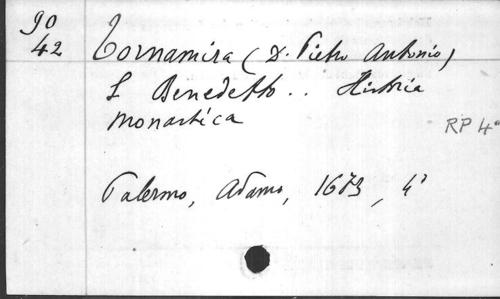 90
42
Tornamira (D. Pietro Antonio)
S Benedetto .. Historia
Monastica
RP 4°
Palermo, Adamo, 1673, 4°